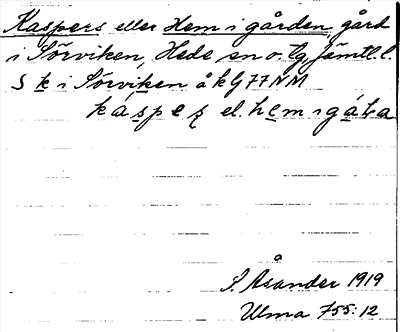 Kaspers eller Hem i gården gård
i Sörviken, Hede sn o. tg Jämtl. l.
S k i Sörviken å k G 77 N M
káspeʂ el. hem i gáɖa
I. Åsander 1919
Ulma 755:12